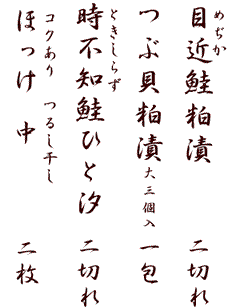 めぢか
目近鮭粕漬 二切れ
つぶ貝粕漬 大三個入 一包
ときしらず
時不知鮭ひと汐 二切れ
コクあり つるし干し
ほっけ 中 二枚